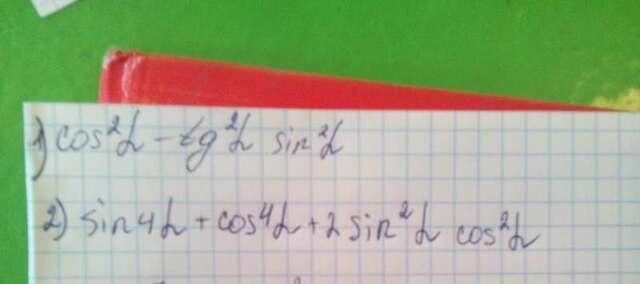 1) cos²α - tg²α sin²α
2) sin4α + cos⁴α + 2 sin²α cos²α